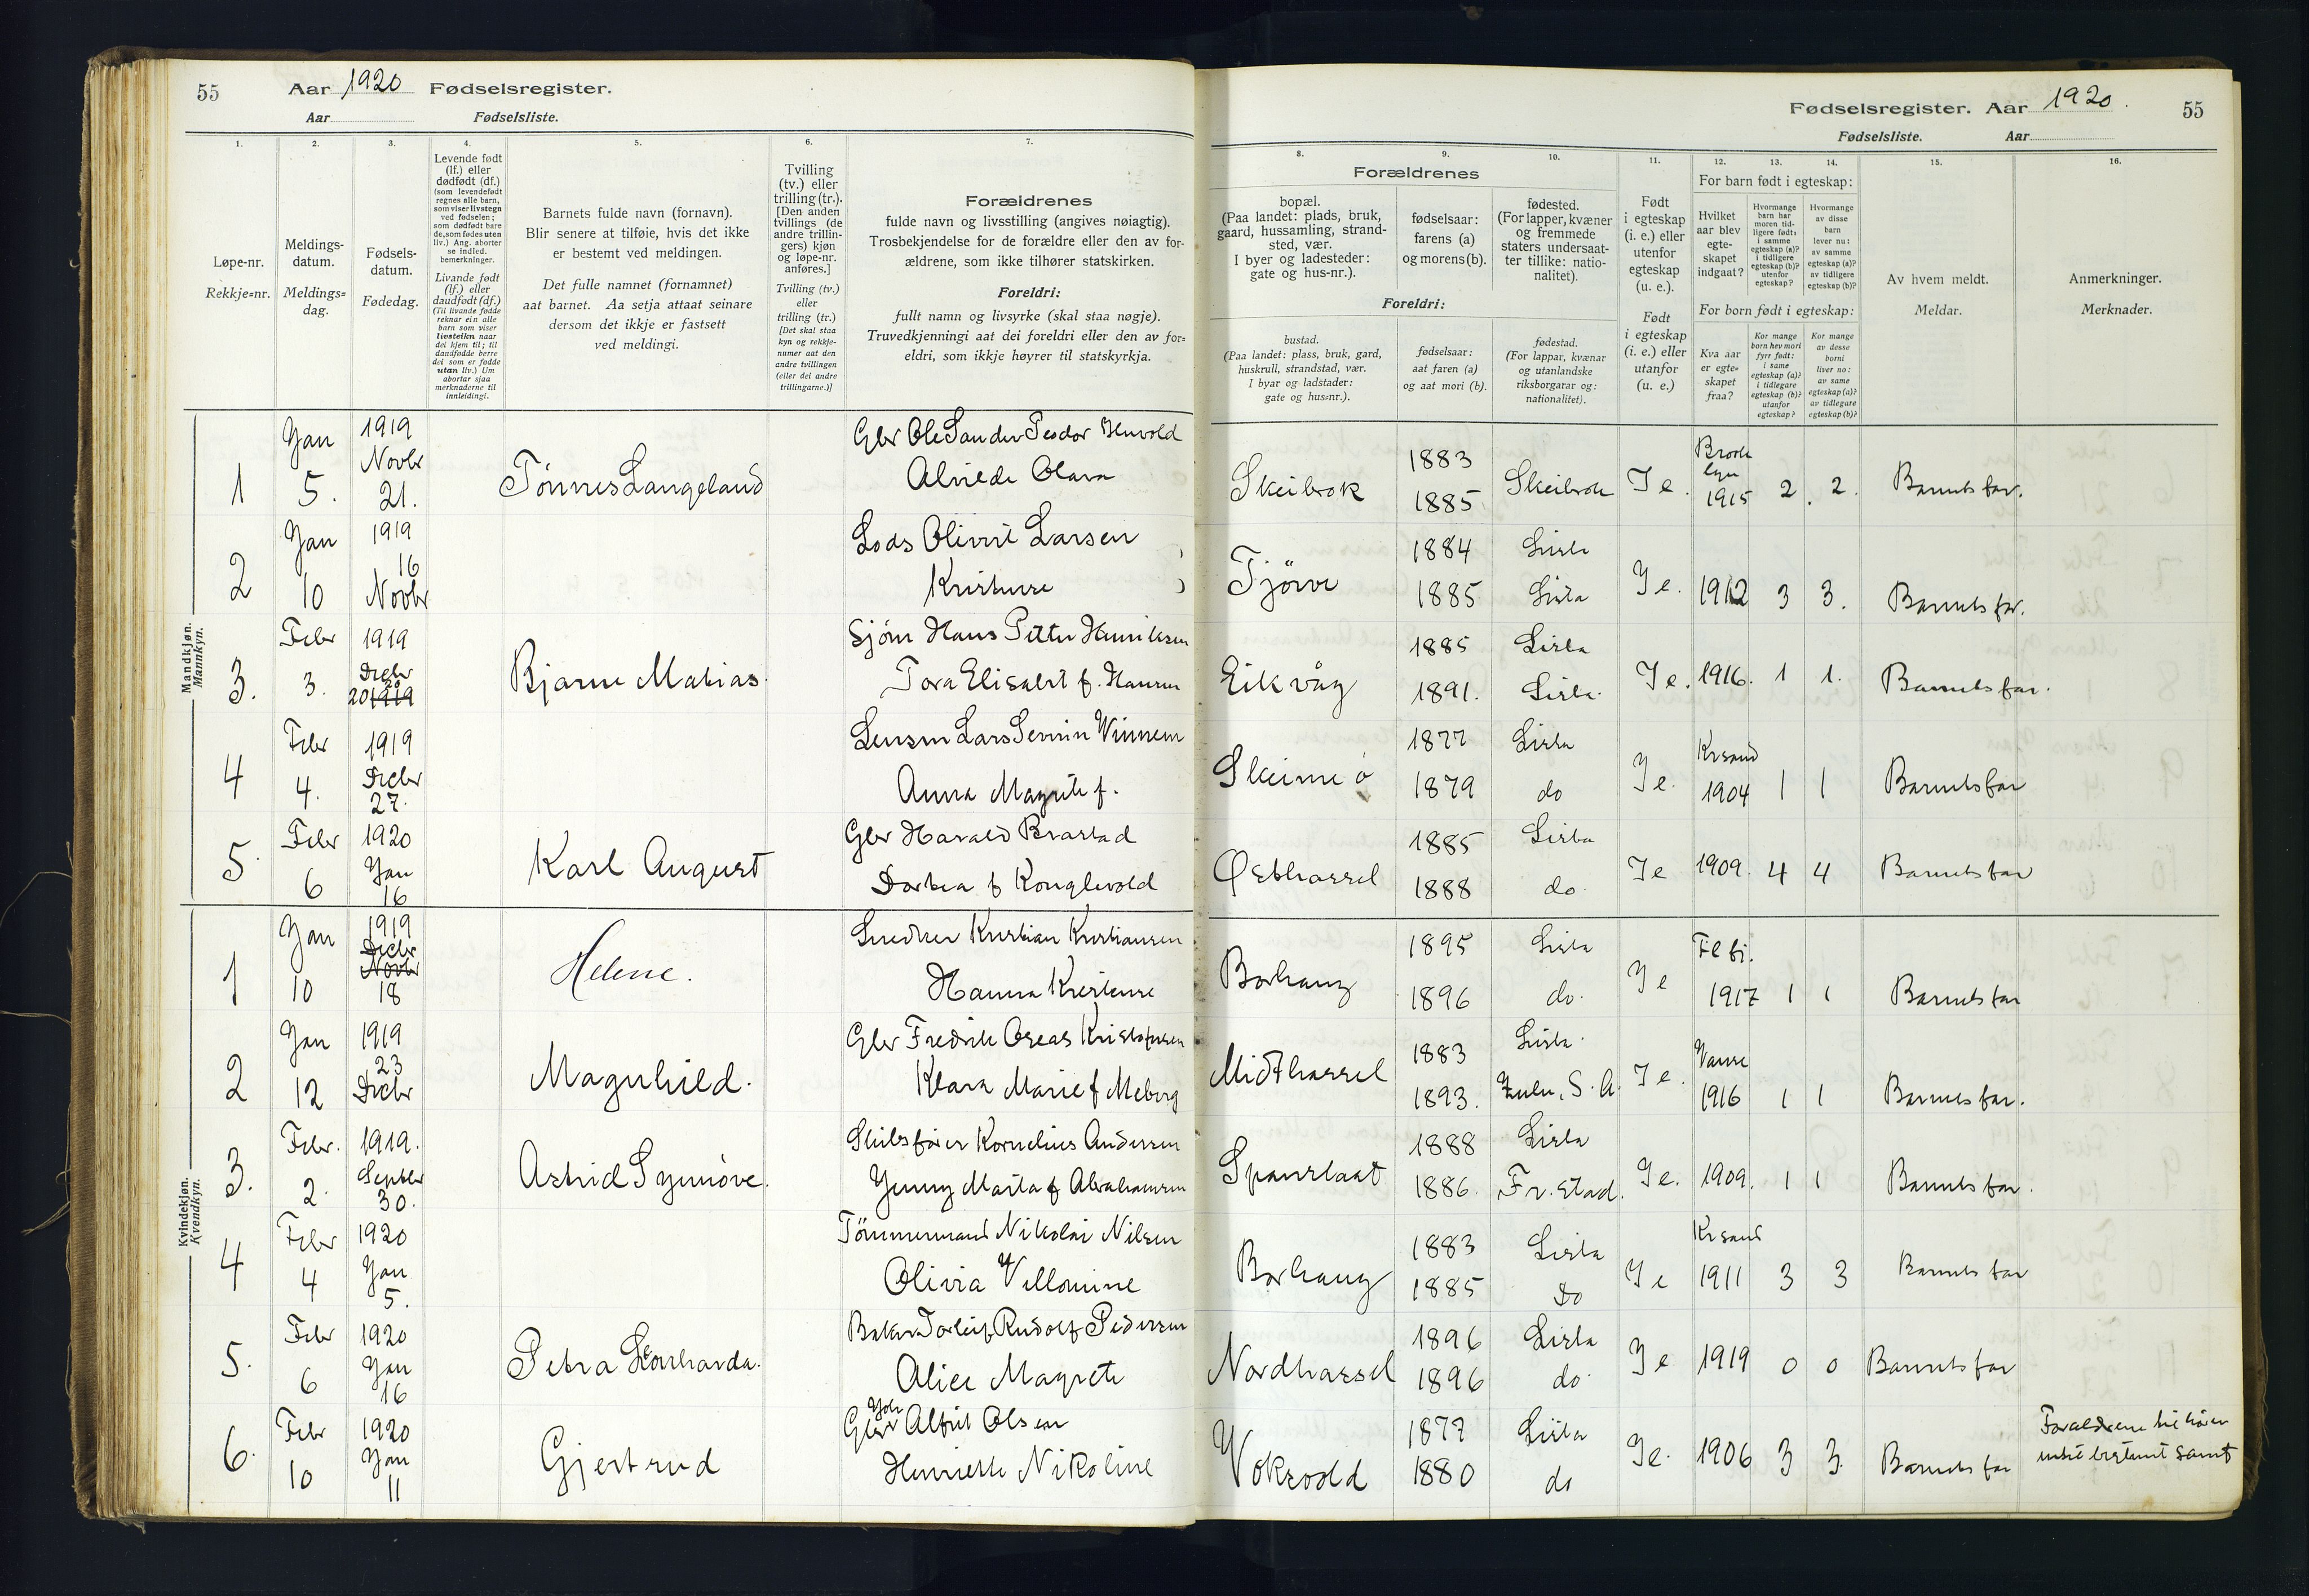 55 Aar 1920 Fødselsregister.
Aar Fødselsliste.
1. 2. 3. 4. 5. 6. 7.
Løpe-nr.
Rekkje=nr.
Meldings-
datum.
Meldings=
dag.
Fødsels-
datum.
Fødedag.
Levende født
(lf.) eller
dødfødt (df.)
(som levendefødt
regnes alle barn,
som viser livstegn
ved fødselen;
som dødfødt bare
de, som fødes uten
liv.) Ang. aborter
se indled.
bemerkninger.
Livande født
(lf.) eller
daudfødt (df.)
(Til livande fødde
reknar ein alle
born som viser
livsteikn naar
dei kjem til; til
daudfødde berre
dei som er fødde
utan liv.) Um
abortar sjaa
merknaderne til
innleidingi.
Barnets fulde navn (fornavn).
Blir senere at tilføie, hvis det ikke
er bestemt ved meldingen.
Det fulle namnet (fornamnet)
aat barnet. Aa setja attaat seinare
dersom det ikkje er fastsett
ved meldingi.
Tvilling
(tv.) eller
trilling (tr.).
[Den anden
tvillings (de
andre trillin-
gers) kjøn
og løpe-nr.
anføres.]
Tvilling (tv.)
eller
trilling (tr.)
[Det skal staa
kyn og rekkje-
numer aat den
andre tvillingen
(eller dei andre
trillingarne.)]
Forældrenes
fulde navn og livsstilling (angives nøiagtig).
Trosbekjendelse for de forældre eller den av for-
ældrene, som ikke tilhører statskirken.
Foreldri:
fullt namn og livsyrke (skal staa nøgje).
Truvedkjenningi aat dei foreldri eller den av for=
eldri, som ikkje høyrer til statskyrkja.
Mandkjøn.
Mannkyn.
1 Jan 5. 1919 Novbr 21. Tönnes Langeland Gbr Ole Sander Teodor
Alvilde Olava
2 Jan 10 1919 16 Novbr Lods Olivert Larsen
Kristense
3. Febr 3. 1919 Decbr 20 1919 Bjarne Mathias. Sjöm Hans Petter Henriksen
Tora Elisabet f. Hansen
4 Febr 4. 1919 Decbr 27. Lensm Lars Severin Vinnem
Anna Magrete f.
5. Febr 6 1920 Jan 16 Karl August Gbr Harald Brastad
Dortea f Konglevold
Kvindekjøn.
Kvendkyn.
1 Jan 10 1919 Decbr Novbr 18 Helene. Snedker Kristian Kristiansen
Hanna Kristense
2 Jan 12 1919 23 Decbr Magnhild. Gbr Fredrik Oseas Kristofersen
Klara Marie f Meberg
3. Febr. 2. 1919. Septbr 30. Astrid Synnöve. Skibsfører Kornelius Andersen
Jenny Marta f Abrahamsen
4 Febr 4 1920 Jan 5. Tömmermand Nikolai Nilsen
Olivia Villomine
5. Febr 6 1920 Jan 16 Petra Leonharda. Baker Torleif Rudolf Pedersen
Alice Magrete
6. Febr 10 1920 Jan 11 Gjertrud Gbr Alfred Olsen
Henriette Nikoline
Fødselsregister. Aar 1920. 55
Fødselsliste. Aar
8. 9. 10. 11. 12. 13. 14. 15. 16.
Forældrenes
bopæl.
(Paa landet: plads, bruk,
gaard, hussamling, strand-
sted, vær.
I byer og ladesteder:
gate og hus-nr.).
fødselsaar:
farens (a)
og morens (b).
fødested.
(For lapper, kvæner
og fremmede
staters undersaat-
ter tillike: natio-
nalitet).
Foreldri:
bustad.
(Paa landet: plass, bruk, gard,
huskrull, strandstad, vær.
I byar og ladstader:
gate og hus=nr.).
fødselsaar:
aat faren (a)
og aat mori (b).
fødestad.
(For lappar, kvænar
og utanlandske
riksborgarar og:
nationalitet).
Født
i egteskap
(i. e.) eller
utenfor
egteskap
(u. e.).
Født
i egteskap
(i. e.) eller
utanfor
(u. e.)
For barn født i egteskap:
Hvilket
aar blev
egte-
skapet
indgaat?
Hvormange
barn har
moren tid-
ligere født:
i samme
egteskap (a)?
i tidligere
egteskap (b)?
utenfor
egteskap?
Hvormange
av disse
barn
lever nu:
av samme
egteskap (a)?
av tidligere
egteskap (b)?
For born født i egteskap:
Kva aar
er egte=
skapet
fraa?
Kor mange
born hev mori
fyrr født:
i same
egteskap (a)?
i tidlegare
egteskap (b)?
utanfor
egteskap?
Kor mange
av desse
borni
liver no:
av same
egteskap (a)?
av tidlegare
egteskap (b)?
Av hvem meldt.
Meldar.
Anmerkninger.
Merknader.
Skeibrok 1883 1885 Skeibrok Ie. Brooklyn 1915 2. 2. Barnets far.
Tjörve 1884 1885 Lista Lista Ie. 1912 3 3. Barnets far.
Eikvåg 1885 1891. Lista Lista. Ie. 1916. 1 1. Barnets far.
Skeime 1877 1879 Lista do Ie. Krsand 1904 1 1 Barnets far
Østhassel 1885 1888 Lista do. Ie 1909. 4 4 Barnets far
Borhaug 1895 1896 Lista do. Ie 1917 1 1 Barnets far
Midthassel 1883 1893. Lista. Zulu, S. A. Ie. Vanse 1916 1 1 Barnets far.
Spanslaat 1888 1886. Lista Fr.stad. Ie. 1909. 1 1 Barnets far.
Borhaug 1883 1885 Lista Do Ie Krsand 1911 3 3 Barnets far
Nordhassel 1896 1896 Lista do. Ie 1919 0 0 Barnets far
Vokseold 1877 1880 Lista do Ie. 1906 3 3. Barnets far Forældrene tilhører
intet bestemt samf